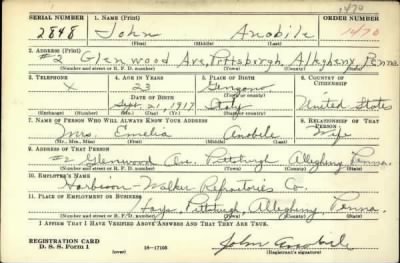 1470
SERIAL NUMBER 1. NAME (Print) ORDER NUMBER
2848 John Anobile 1470
(First) (Middle) (Last)
2. ADDRESS (Print)
#2 Glenwood Ave, Pittsburgh Allegheny Penna.
(Number and street or R. F. D. number) (Town) (County) (State)
3. TELEPHONE 4. AGE IN YEARS 5. PLACE OF BIRTH 6. COUNTRY OF CITIZENSHIP
X 23 Genzano
DATE OF BIRTH (Town or county)
Sept. 21, 1917 Italy United States
(Exchange) (Number) (Mo.) (Day) (Yr.) (State or country)
7. NAME OF PERSON WHO WILL ALWAYS KNOW YOUR ADDRESS 8. RELATIONSHIP OF THAT PERSON
Mrs. Emelia Anobile Wife
(Mr., Mrs., Miss) (First) (Middle) (Last)
9. ADDRESS OF THAT PERSON
#2 Glenwood Ave. Pittsburgh Allegheny Penna.
(Number and street or R. F. D. number) (Town) (County) (State)
10. EMPLOYER'S NAME
Harbison-Walker Refractories Co.
11. PLACE OF EMPLOYMENT OR BUSINESS
Hays, Pittsburgh Allegheny, Penna.
(Number and street or R. F. D. number) (Town) (County) (State)
I AFFIRM THAT I HAVE VERIFIED ABOVE ANSWERS AND THAT THEY ARE TRUE.
REGISTRATION CARD
D. S. S. Form 1 (over) 16-17105 John Anobile
(Registrant's signature)